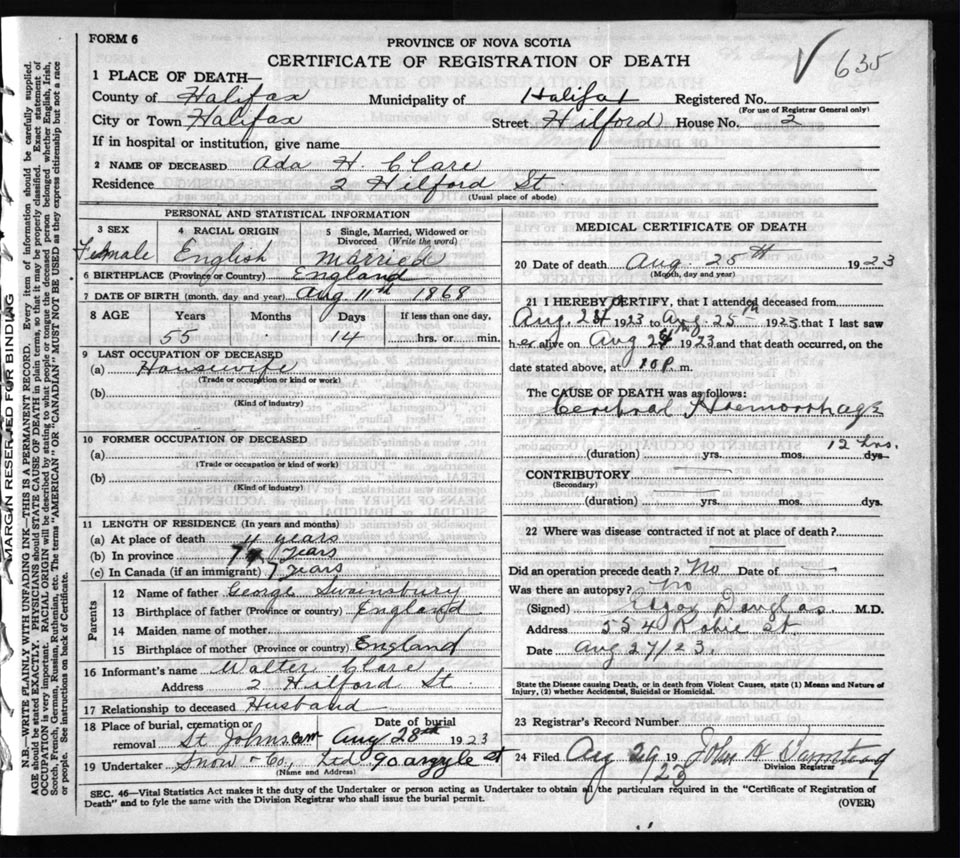 FORM 6
PROVINCE OF NOVA SCOTIA
CERTIFICATE OF REGISTRATION OF DEATH
√ 635
1 PLACE OF DEATH—
County of Halifax Municipality of Halifax Registered No.
(For use of Registrar General only)
City or Town Halifax Street Hilford House No. 2
If in hospital or institution, give name
2 NAME OF DECEASED Ada H. Clare
Residence 2 Hilford St
(Usual place of abode)
PERSONAL AND STATISTICAL INFORMATION
3 SEX 4 RACIAL ORIGIN 5 Single, Married, Widowed or Divorced (Write the word)
Female English Married
6 BIRTHPLACE (Province or Country) England
7 DATE OF BIRTH (month, day and year) Aug 11th 1868
8 AGE Years Months Days If less than one day,
55 14 hrs. or min.
9 LAST OCCUPATION OF DECEASED
(a) Housewife
(Trade or occupation or kind or work)
(b)
(Kind of industry)
10 FORMER OCCUPATION OF DECEASED
(a)
(Trade or occupation or kind or work)
(b)
(Kind of industry)
11 LENGTH OF RESIDENCE (In years and months)
(a) At place of death 4 years
(b) In province 7 years
(c) In Canada (if an immigrant) 7 years
Parents
12 Name of father George Swainsbury
13 Birthplace of father (Province or country) England
14 Maiden name of mother
15 Birthplace of mother (Province or country) England
16 Informant's name Walter Clare
Address 2 Hilford St
17 Relationship to deceased Husband
18 Place of burial, cremation or removal St Johns cem Date of burial Aug 28th 1923
19 Undertaker Snow & Co, Ltd 90 argyle st
(Name and Address)
MEDICAL CERTIFICATE OF DEATH
20 Date of death Aug. 25th 1923
(Month, day and year)
21 I HEREBY CERTIFY, that I attended deceased from
Aug. 24 1923 to Aug. 25th 1923 that I last saw
her alive on Aug 24th 1923 and that death occurred, on the
date stated above, at 10 P. m.
The CAUSE OF DEATH was as follows:
Cerebral Haemorrhage
12 hrs.
(duration) yrs. mos. dys.
CONTRIBUTORY
(Secondary)
(duration) yrs. mos. dys.
22 Where was disease contracted if not at place of death?
Did an operation precede death? No Date of —
Was there an autopsy? No
(Signed) Edgar Douglas M.D.
Address 554 Robie St.
Date Aug 27/23.
State the Disease Causing Death, or in death from Violent Causes, state (1) Means and Nature of Injury, (2) whether Accidental, Suicidal or Homicidal.
23 Registrar's Record Number
24 Filed Aug 29 19/23 John H
Division Registrar
SEC. 46—Vital Statistics Act makes it the duty of the Undertaker or person acting as Undertaker to obtain all the particulars required in the "Certificate of Registration of
Death" and to fyle the same with the Division Registrar who shall issue the burial permit.
(OVER)
MARGIN RESERVED FOR BINDING
N.B.—WRITE PLAINLY WITH UNFADING INK—THIS IS A PERMANENT RECORD. Every item of information should be carefully supplied.
AGE should be stated EXACTLY. PHYSICIANS should STATE CAUSE OF DEATH in plain terms, so that it may be properly classified. Exact statement of
OCCUPATION is very important. RACIAL ORIGIN will be described by stating to what people or tongue the deceased person belonged whether English, Irish,
Scotch, French, German, Russian, Ruthenian, etc. The terms "AMERICAN" OR "CANADIAN" MUST NOT BE USED as they express citizenship but not a race
or people. See instructions on back of Certificate.